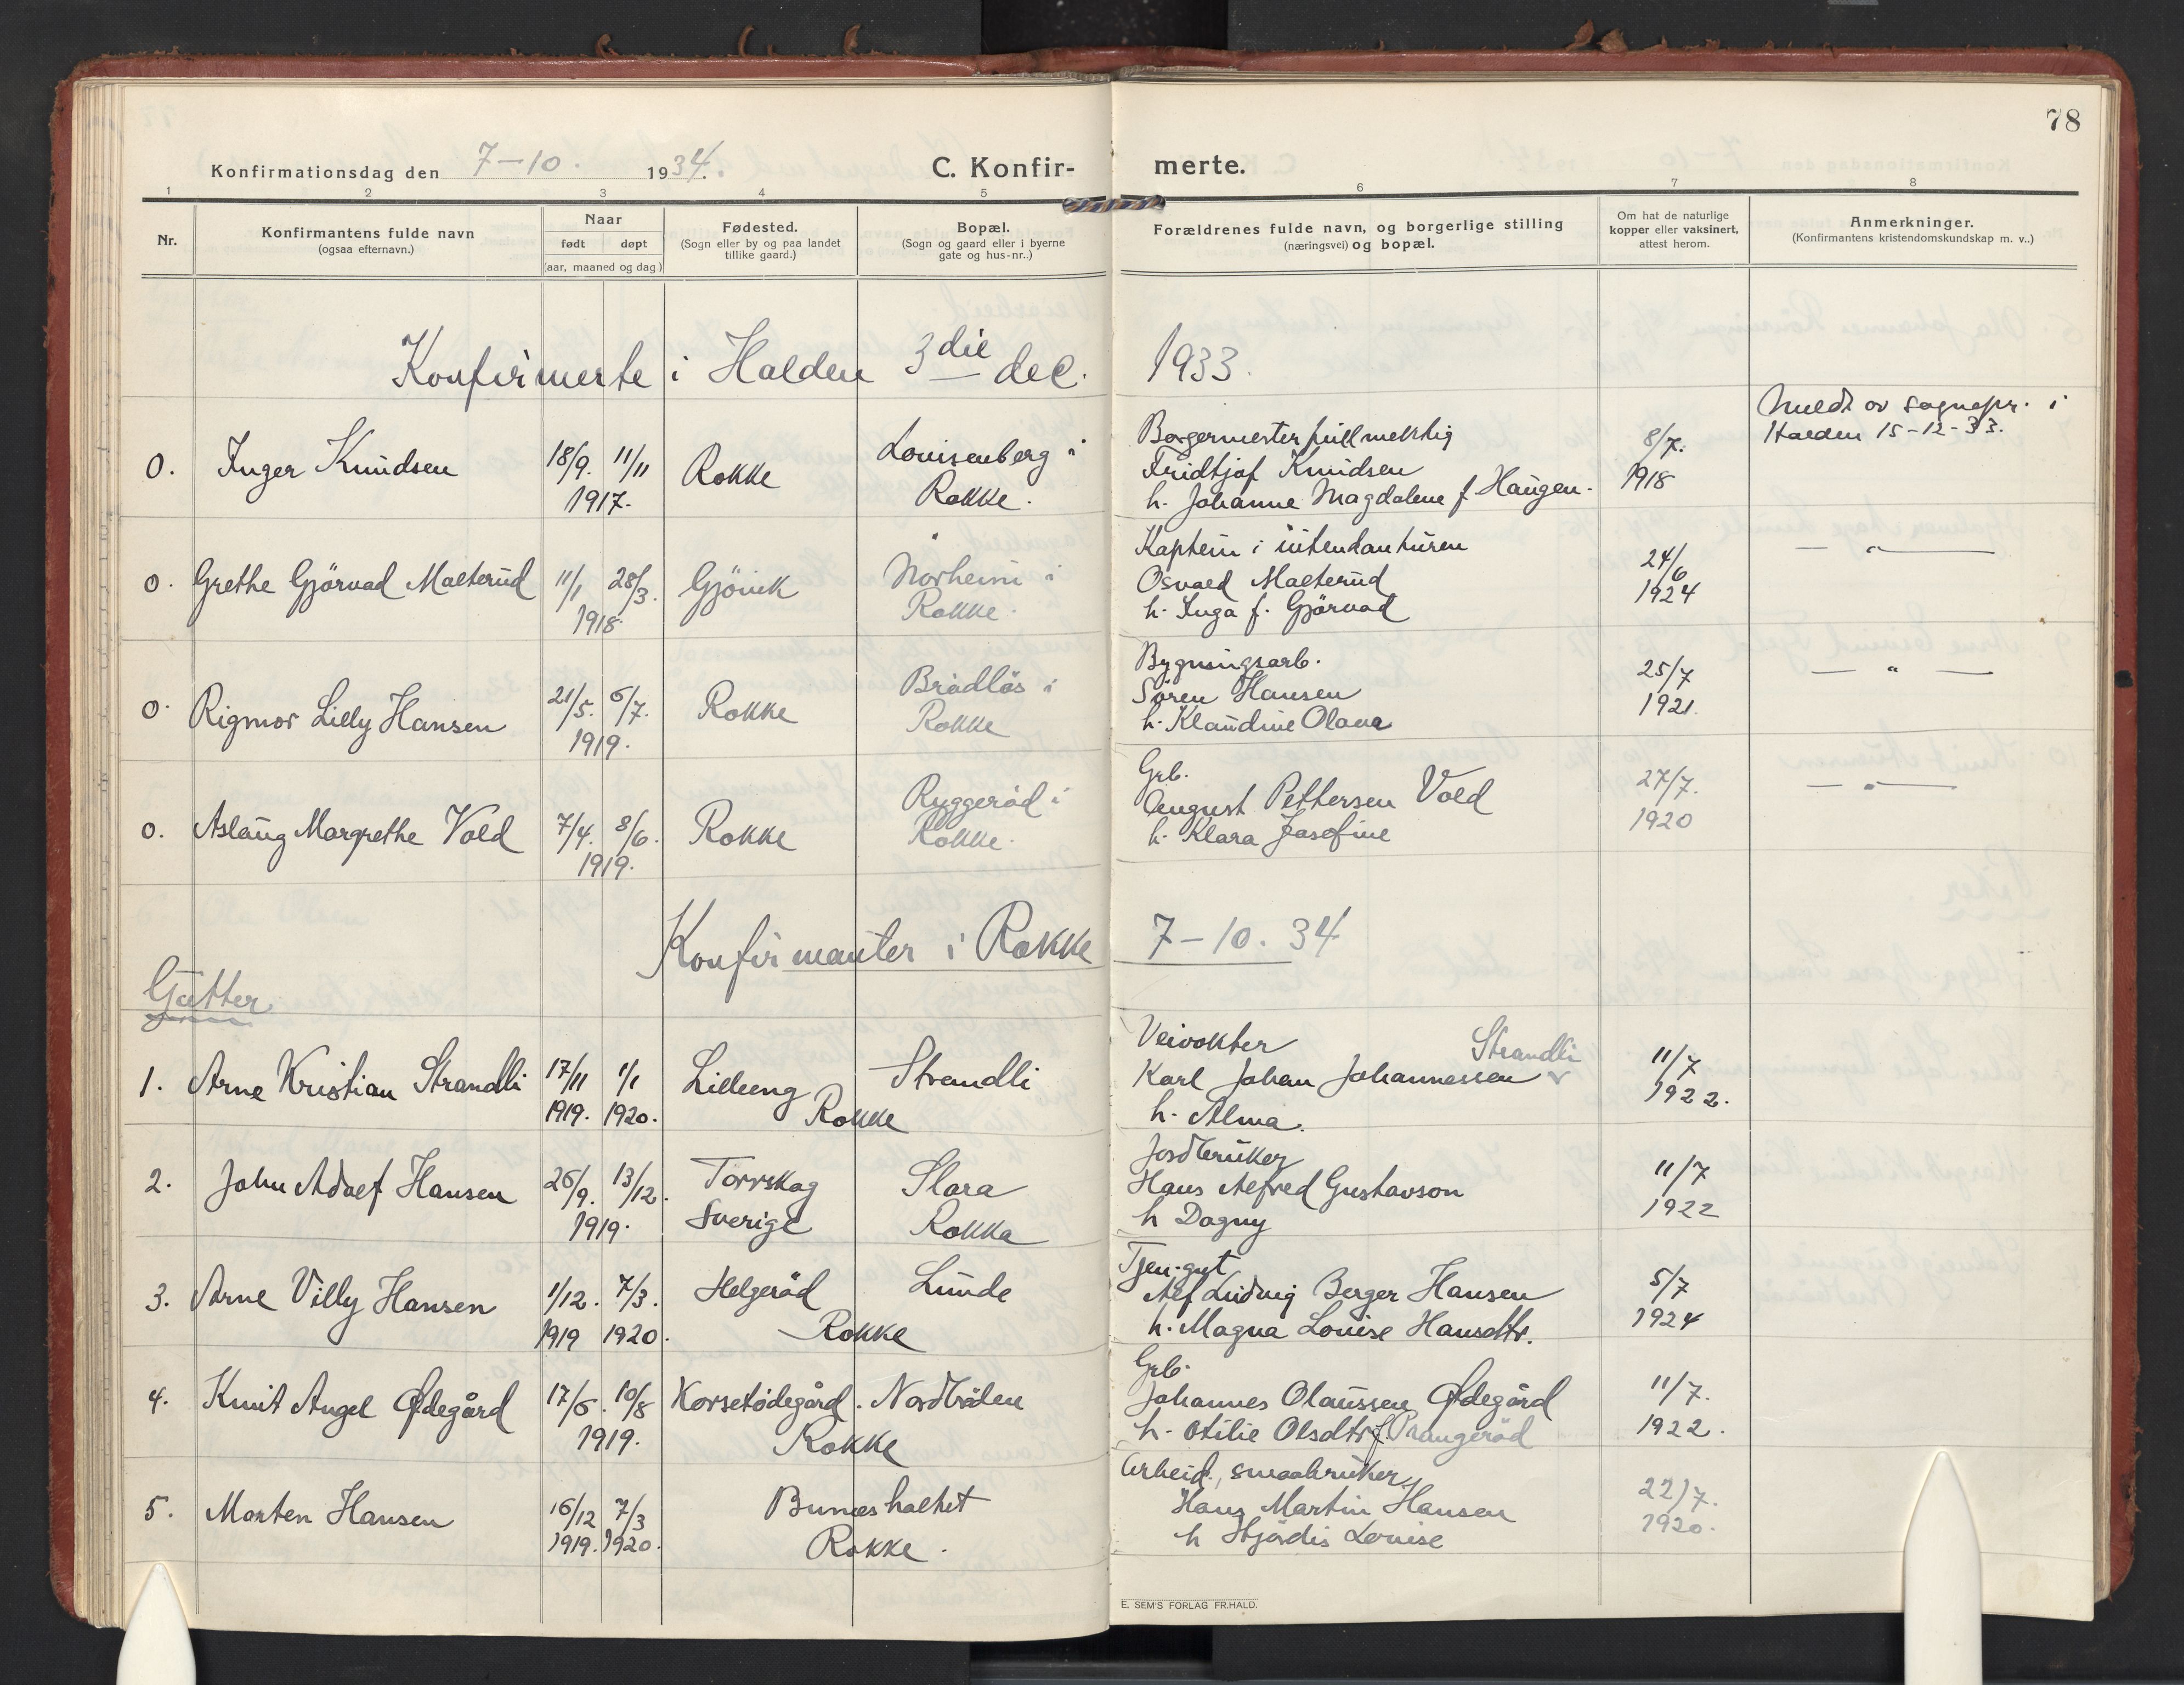 78
Konfirmationsdag den 7-10. 1934. C. Konfir- merte.
1 2 3 4 5 6 7 8
Nr.
Konfirmantens fulde navn
(ogsaa efternavn.)
Naar
født døpt
(aar, maaned og dag)
Fødested.
(Sogn eller by og paa landet
tillike gaard.)
Bopæl.
(Sogn og gaard eller i byerne
gate og hus-nr..)
Forældrenes fulde navn, og borgerlige stilling
(næringsvei) og bopæl.
Om hat de naturlige
kopper eller vaksinert,
attest herom.
Anmerkninger.
(Konfirmantens kristendomskundskap m. v..)
Konfirmerte i Halden 3die dec. 1933.
0. Inger Knudsen
18/9. 11/11
1917.
Rokke
Louisenberg i
Rokke.
Borgermesterfullmektig
Fridtjof Knudsen
h. Johanne Magdalene f. Haugen.
8/7.
1918
Meldt av sognepr. i
Halden 15-12-33.
0. Grethe Gjörvad Malterud
11/1 28/3.
1918.
Gjövik
Norheim i
Rokke.
Kaptein i intendanturen
Osvald Malterud
h. Inga f. Gjörvad
24/6
1924
— " —
0. Rigmor Lilly Hansen
21/5. 6/7.
1919.
Rokke
Brådlös i
Rokke
Bygningsarb.
Sören Hansen
h. Klaudine Olava
25/7
1921.
— " —
0. Aslaug Margrethe Vold
7/4. 8/6.
1919.
Rokke
Ryggeröd i
Rokke.
Grb.
August Pettersen Vold
h. Klara Josefine
27/7.
1920
— " —
Konfirmanter i Rokke 7-10. 34
Gutter
1. Arne Kristian Strandli
17/11 1/1
1919. 1920.
Lilleeng
Rokke
Strandli
Veivokter
Strandli
Karl Johan Johannessen v
h. Alma.
11/7
1922.
2. John Adolf Hansen
26/9. 13/12.
1919.
Torrskog
Sverige
Slora
Rokka
Jordbruker
Hans Alfred Gustavson
h Dagny
11/7
1922
3. Arne Villy Hansen
1/12. 7/3.
1919 1920.
Helgeröd
Rokke
Lunde
Tjen.gut
Alf Ludvig Berger Hansen
h. Magna Louise Hansdtr.
5/7
1924
4. Knut Angel Ødegård
17/6. 10/8
1919.
Korsetödegård.
Rokke
Nordbråten
Grb.
Johannes Olaussen Ødegård
h. Otilie Olsdtr f. Prangeröd
11/7.
1922.
5. Morten Hansen
16/12 7/3
1919. 1920.
Bunæshaltet
Rokke.
Arbeid., smaabruker
Hans Martin Hansen
h Hjördis Louise
22/7.
1920.
E. SEM'S FORLAG FR.HALD.